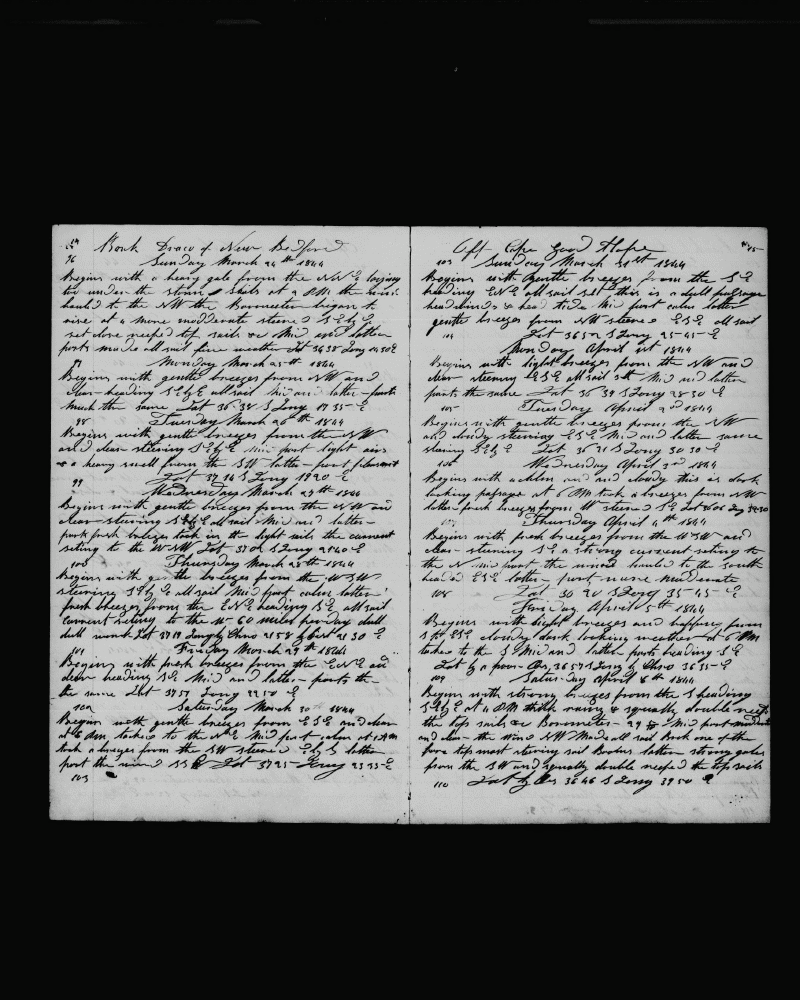 Bark Draco of New Bedford
96 Sunday March 24th 1844
Begins with a heavy gale from the NNE laying
too under the storm sails at 9 PM the wind
hauled to the NW the Barometer began to
rise at 4 more moderate steered SEbE
set close reefed top sails &c Mid and latter
parts made all sail fine weather Lat 3638 Long 1430E
97 Monday March 25th 1844
Begins with gentle breezes from NW and
clear heading SEbE all sail Mid and latter parts
much the same Lat 36-38 S Long 1735-E
98 Tuesday March 26th 1844
Begins with gentle breezes from the NW
and clear steering SEbE Mid part light airs
& a heavy swell from the SW latter part
Lat 3736 S Long 1920-E
99 Wednesday March 27th 1844
Begins with gentle breezes from the NW and
clear steering SEbE all sail Mid and latter
part fresh breezes took in the light sails the current
seting to the WNW Lat S Long 2040-E
100 Thursday March 28th 1844
Begins with gentle breezes from the WSW
steering SEbE all sail Mid part calm latter
fresh breezes from the ENE heading SE all sail
Current seting to the W 60 miles per day dull
dull work Lat 3719 Long by Chro 2158 by 2130 E
101 Friday March 29th 1844
Begins with fresh breezes from the ENE and
clear heading SE Mid and latter parts the
the same Lat 3757 Long 2250-E
102 Saturday March 30 th 1844
Begins with gentle breezes from ESE and clear
at 6 PM tacked to the NE Mid part calm at 4 AM
took a breeze from the SW steered EbS latter
part the wind SSE Lat 3725-Long 2335-E
103
Off Cape Good Hope
103 Sunday March 31st 1844
Begins with gentle breezes from the SE
heading ENE all sail set this is a dull passage
head wind & head tide Mid part calm latter
gentle breezes from NW steered ESE all sail
104 Lat 3650 S Long 25-45-E
Monday April 1st 1844
Begins with light breezes from the NW and
clear steering ESE all sail set Mid and latter
parts the same Lat 36 39 S Long 28 30 E
105 Tuesday April 2nd 1844
Begins with gentle breezes from the NW
and cloudy steering ESE Mid and latter same
steering SEbE Lat 36 21 S Long 30 30 E
106 Wednesday April 3rd 1844
Begins with a calm and cloudy this is dark
looking passage at 6 PM took a breeze from NW
latter fresh breezes from W steered SE Lat 3606 Long 3230
107 Thursday April 4th 1844
Begins with fresh breezes from the WSW and
clear steering SE a strong current seting to
the N Mid part the wind hauled to the south
headed ESE latter part more moderate
108 Lat 36 20 S Long 35-45-E
Friday April 5th 1844
Begins with light breezes and from
cloudy dark looking weather at 6 PM
tacked to the S Mid and latter parts heading SE
Lat by a poor Obs 3657 S Long by Chro 3635-E
109 Saturday April 6th 1844
Begins with strong breezes from the S heading
SEbE at 4 PM thick rainy & squally double reefed
the top sails &c Barometer 29 Mid part moderate
and clear the wind NW Made all sail Broke one of the
fore top mast stering sail Booms latter strong gales
from the SW and squally double reefed the top sails
110 Lat by Obs 3646 S Long 3950 E